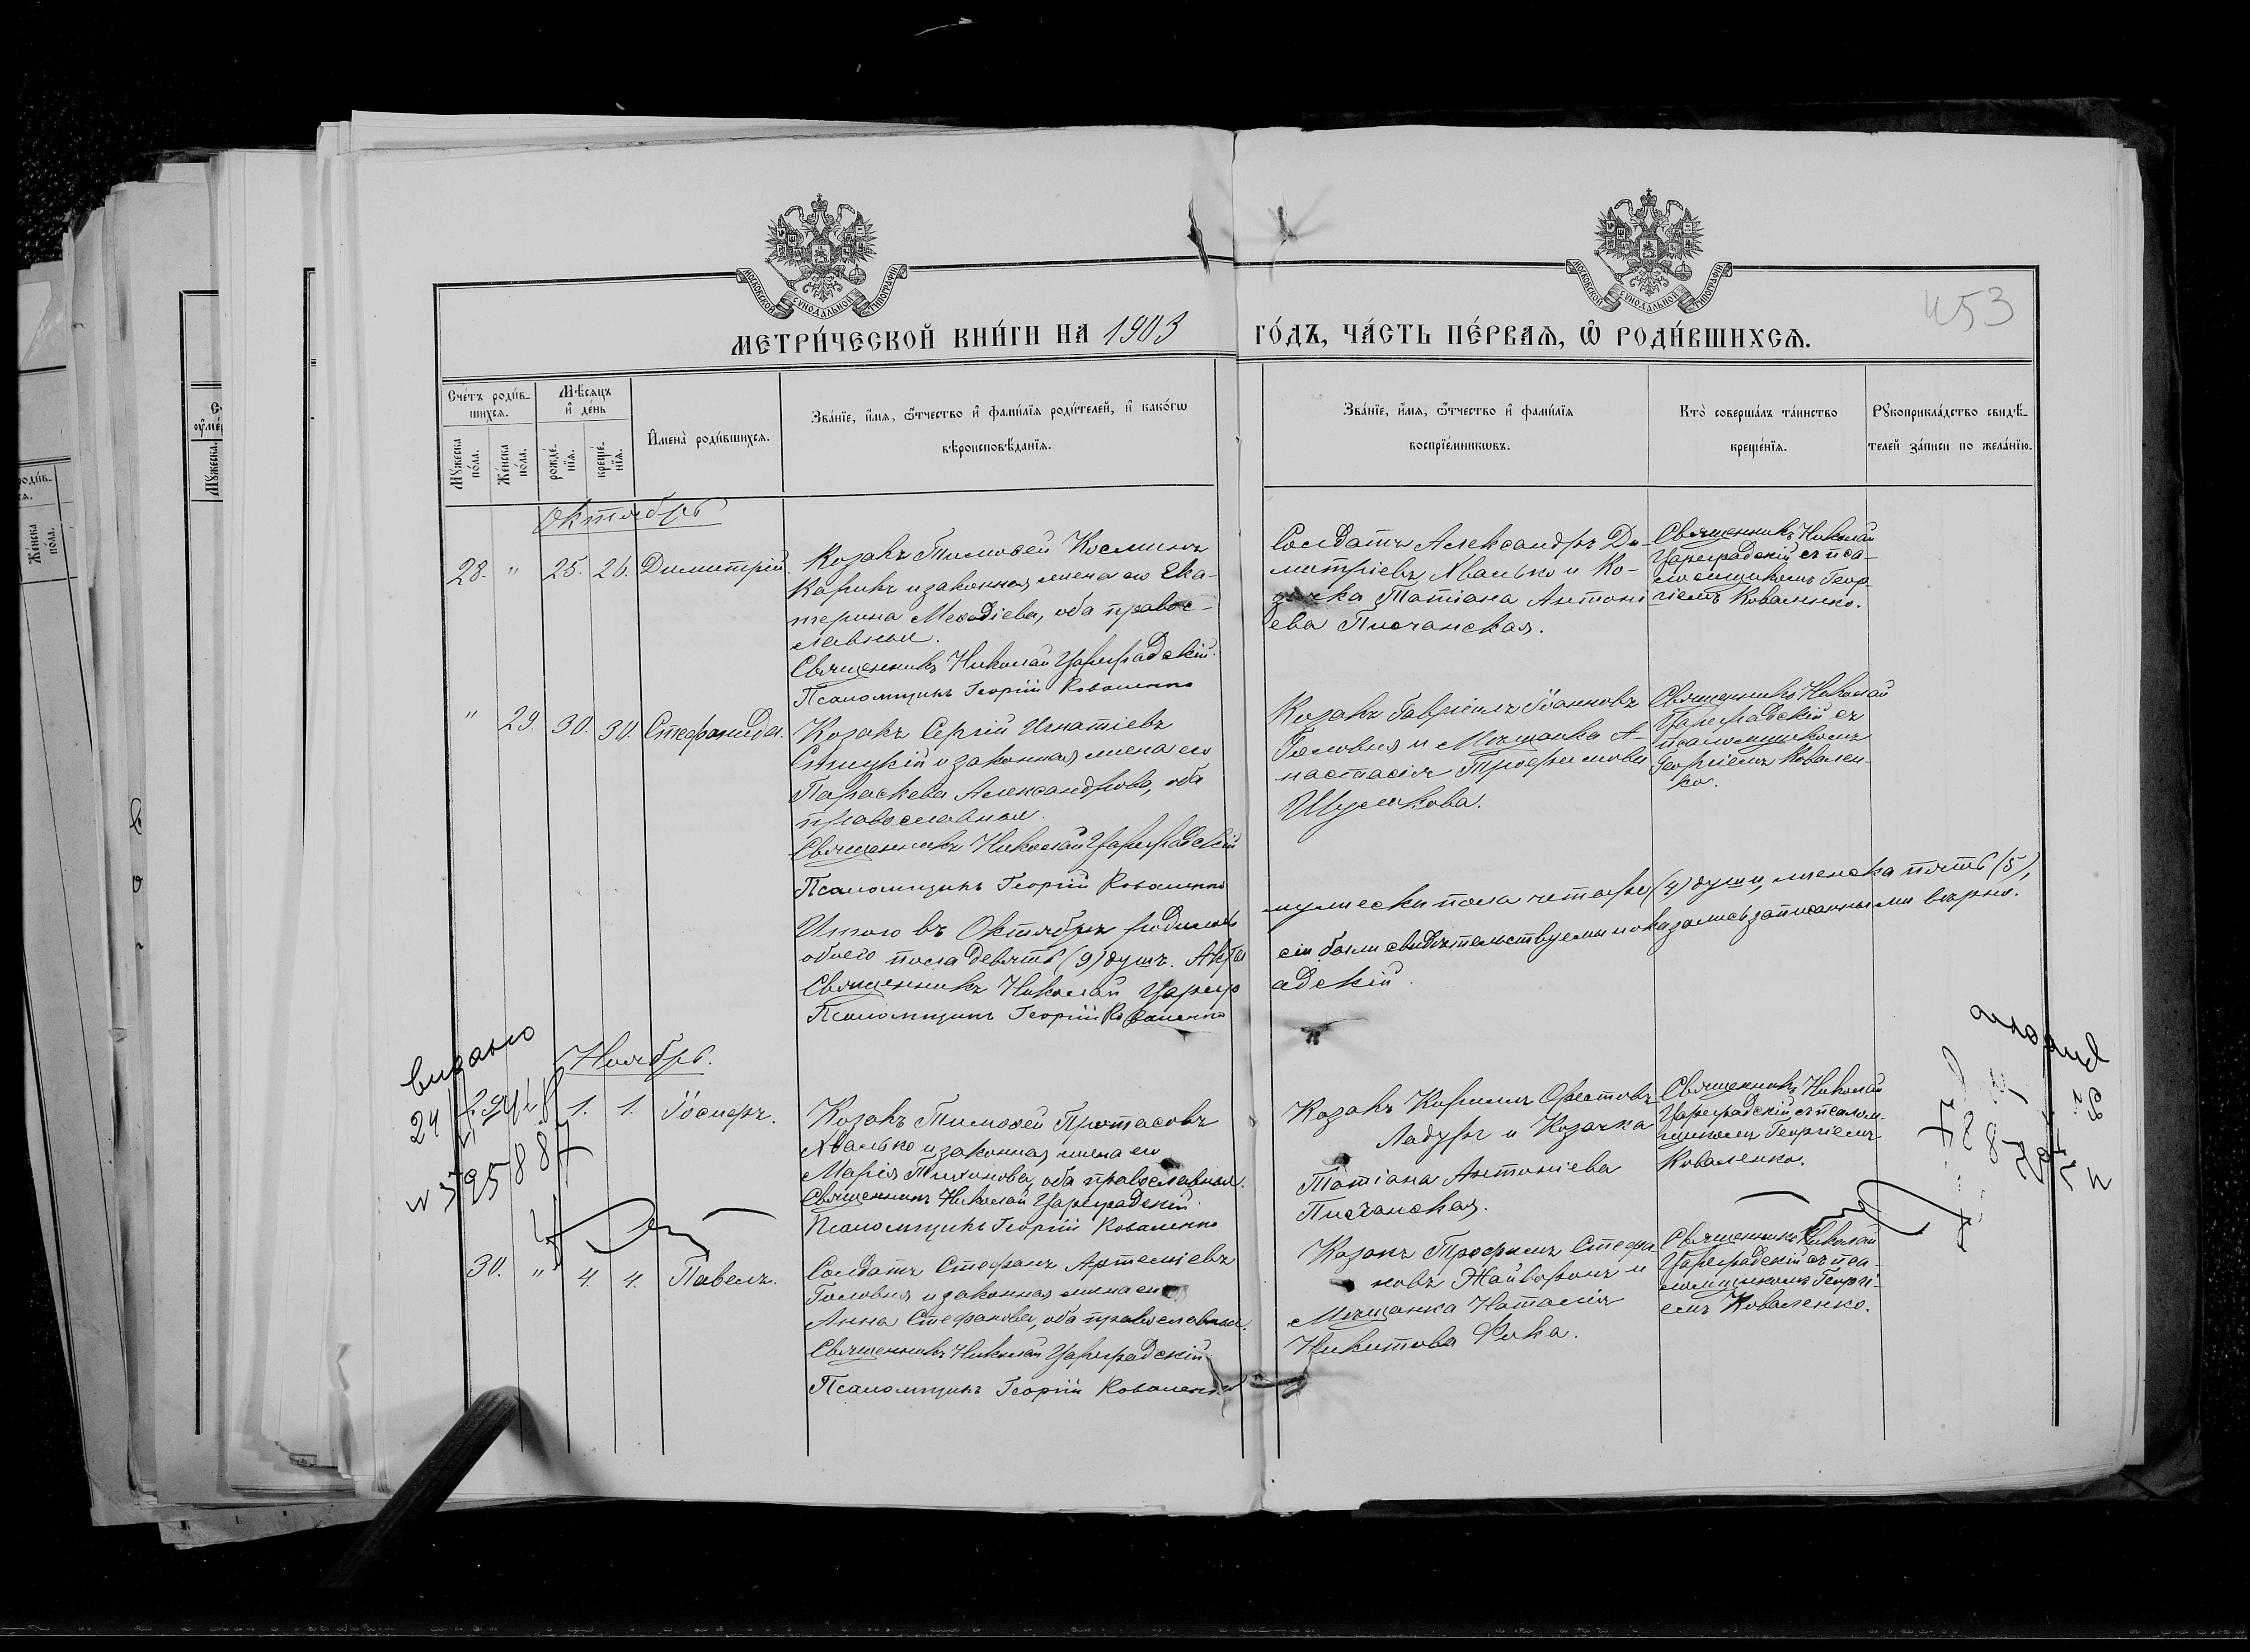 МОСКОВСКОЙ СУНОДАЛЬНОЙ ТИПОГРАФІИ
МОСКОВСКОЙ СУНОДАЛЬНОЙ ТИПОГРАФІИ
453
МЕТРИ́ЧЕСКОЙ КНИ́ГИ НА 1903 ГО́ДЪ, ЧА́СТЬ ПЕ́РВАѦ, Ѡ҆ РОДИ́ВШИХСѦ.
Сче́тъ роди́в-
шихсѧ.
Мѣ́сѧцъ
и҆ де́нь
Мꙋ́жеска по́ла.
Же́нска по́ла.
рожде́-
нїѧ.
креще́-
нїѧ.
И҆мена̀ роди́вшихсѧ.
Зва́нїе, и҆́мѧ, ѻ҆́тчество и҆ фами́лїѧ роди́телей, и҆ како́гѡ
вѣроисповѣ́данїѧ.
Зва́нїе, и҆́мѧ, ѻ҆́тчество и҆ фами́лїѧ
воспрїе́мникѡвъ.
Кто̀ соверша́лъ та́инство
креще́нїѧ.
Рꙋкоприкла́дство свидѣ́-
телей за́писи по жела́нїю.
Октябрь
28. " 25. 26. Димитрій.
Козакъ Тимоѳей Косминъ
Карикъ и законная жена его Ека-
терина Меѳодіева, оба правос-
лавные.
Священникъ Николай Цареградскій.
Псаломщикъ Георгій Коваленко
Солдатъ Александръ Ди-
митріевъ Хвалько и Ко-
зачка Татіана Антоні
ева Писчанская.
Священникъ Николай
Цареградскій съ пса-
ломщикомъ Геор-
гіемъ Коваленко.
" 29. 30. 30. Стефанида.
Козакъ Сергій Игнатіевъ
и законная жена его
Параскева Александрова, оба
православные.
Священникъ Николай Цареградскій
Псаломщикъ Георгій Коваленко
Козакъ Гавріилъ Іоанновъ
Головня и Мѣщанка А-
настасія Трофимова
Шумкова.
Священникъ Николай
Цареградскій съ
псаломщикомъ
Георгіемъ Ковален-
ко.
Итого въ Октябрѣ родилось мужеска пола четыре (4) души, женска пять (5),
обоего пола девять (9) душъ. Акты сіи были свидѣтельствуемы и оказались записанными вѣрно.
Священникъ Николай Цареградскій.
Псаломщикъ Георгій Коваленко
Ноябрь.
видано
1. 1. Іосифъ.
Козакъ Тимоѳей Протасовъ
Хвалько и законная жена его
Марія Тихонова, оба православные.
Священникъ Николай Цареградскій.
Псаломщикъ Георгій Коваленко
Козакъ Кириллъ Орестовъ
Ладуръ и Козачка
Татіана Антоніева
Писчанская.
Священникъ Николай
Цареградскій съ псалом-
щикомъ Георгіемъ
Коваленко.
30. " 4. 4. Павелъ.
Солдатъ Стефанъ Артеміевъ
Головня и законная жена его
Анна Стефанова, оба православные.
Священникъ Николай Цареградскій.
Псаломщикъ Георгій Коваленко
Козакъ Трофимъ Стефа
новъ Жайворонъ и
Мѣщанка Наталія
Никитова
Священникъ Николай
Цареградскій съ пса-
ломщикомъ Георгі-
емъ Коваленко.